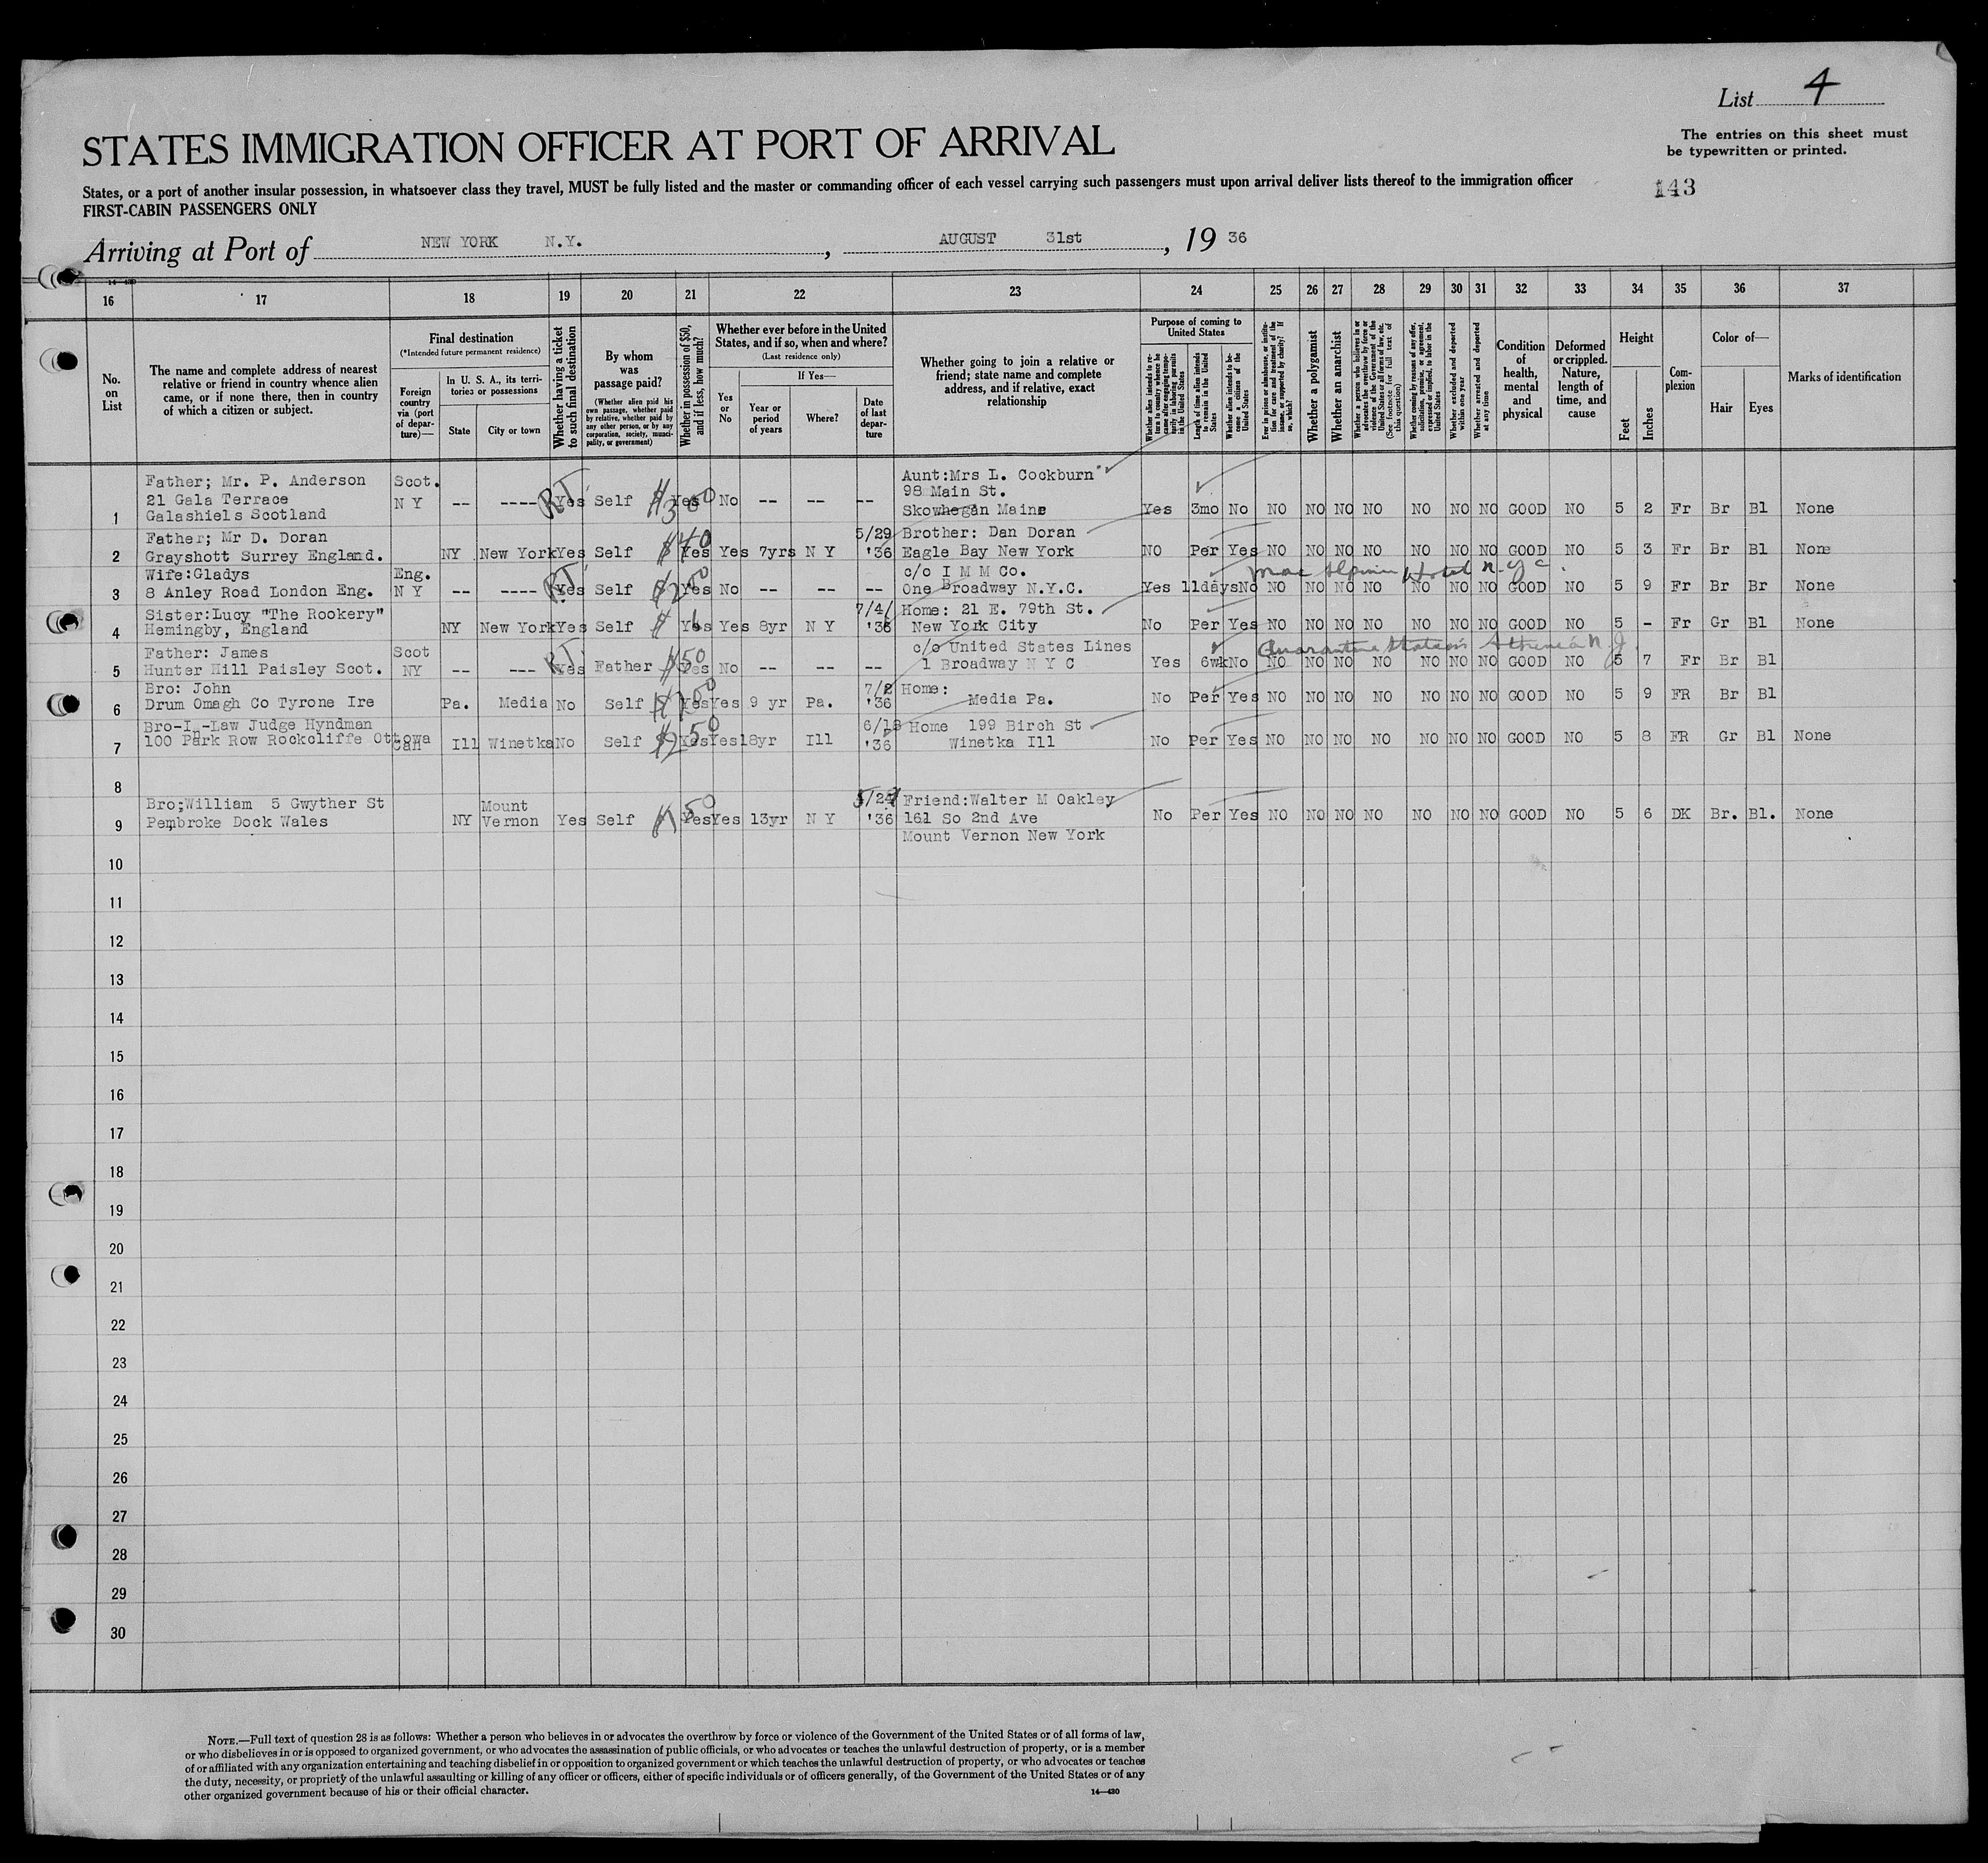 List 4
STATES IMMIGRATION OFFICER AT PORT OF ARRIVAL
The entries on this sheet must
be typewritten or printed.
States, or a port of another insular possession, in whatsoever class they travel, MUST be fully listed and the master or commanding officer of each vessel carrying such passengers must upon arrival deliver lists thereof to the immigration officer
FIRST-CABIN PASSENGERS ONLY
143
Arriving at Port of NEW YORK N.Y. , AUGUST 31st , 19 36
16 17 18 19 20 21 22 23 24 25 26 27 28 29 30 31 32 33 34 35 36 37
No. on List
The name and complete address of nearest relative or friend in country whence alien came, or if none there, then in country of which a citizen or subject.
Final destination
(*Intended future permanent residence)
Foreign country via (port of departure)—
In U. S. A., its territories or possessions
State
City or town
Whether having a ticket to such final destination
By whom was passage paid?
(Whether alien paid his own passage, whether paid by relative, whether paid by any other person, or by any corporation, society, municipality, or government)
Whether in possession of $50, and if less, how much?
Whether ever before in the United States, and if so, when and where?
(Last residence only)
Yes or No
If Yes—
Year or period of years
Where?
Date of last departure
Whether going to join a relative or friend; state name and complete address, and if relative, exact relationship
Purpose of coming to United States
Whether alien intends to return to country whence he came after engaging temporarily in laboring pursuits in the United States
Length of time alien intends to remain in the United States
Whether alien intends to become a citizen of the United States
Ever in prison or almshouse, or institution for care and treatment of the insane, or supported by charity? If so, which?
Whether a polygamist
Whether an anarchist
Whether a person who believes in or advocates the overthrow by force or violence of the Government of the United States or all forms of law, etc. (See footnote for full text of this question)
Whether coming by reasons of any offer, solicitation, promise, or agreement, expressed or implied, to labor in the United States
Whether excluded and deported within one year
Whether arrested and deported at any time
Condition of health, mental and physical
Deformed or crippled. Nature, length of time, and cause
Height
Feet
Inches
Complexion
Color of—
Hair
Eyes
Marks of identification
Father; Mr. P. Anderson Scot. Aunt:Mrs L. Cockburn
21 Gala Terrace N Y -- ---- RT Yes Self Yes No -- -- -- 98 Main St.
1 Galashiels Scotland Skowhegan Maine Yes 3mo No NO NO NO NO NO NO NO GOOD NO 5 2 Fr Br Bl None
Father; Mr D. Doran $40 5/29 Brother: Dan Doran
2 Grayshott Surrey England. NY New York Yes Self Yes Yes 7yrs N Y '36 Eagle Bay New York NO Per Yes NO NO NO NO NO NO NO GOOD NO 5 3 Fr Br Bl None
Wife:Gladys Eng. c/o I M M Co. Mac Alpin Hotel N.Y.C.
3 8 Anley Road London Eng. N Y -- ---- RT Yes Self Yes No -- -- -- One Broadway N.Y.C. Yes 11days No NO NO NO NO NO NO NO GOOD NO 5 9 Fr Br Br None
Sister:Lucy "The Rookery" 7/4/ Home: 21 E. 79th St.
4 Hemingby, England NY New York Yes Self Yes Yes 8yr N Y '36 New York City No Per Yes NO NO NO NO NO NO NO GOOD NO 5 - Fr Gr Bl None
Father: James Scot c/o United States Lines Quarantine Station N.J.
5 Hunter Hill Paisley Scot. NY -- --- RT Yes Father $50 Yes No -- -- -- 1 Broadway N Y C Yes 6wk No NO NO NO NO NO NO NO GOOD NO 5 7 Fr Br Bl
Bro: John 7/2 Home:
6 Drum Omagh Co Tyrone Ire Pa. Media No Self Yes Yes 9 yr Pa. '36 Media Pa. No Per Yes NO NO NO NO NO NO NO GOOD NO 5 9 FR Br Bl
Bro-In-Law Judge Hyndman $250 6/18 Home 199 Birch St
7 100 Park Row Rockcliffe Ottowa Can Ill Winetka No Self Yes Yes 18yr Ill '36 Winetka Ill No Per Yes NO NO NO NO NO NO NO GOOD NO 5 8 FR Gr Bl None
8
Bro;William 5 Gwyther St Mount Friend:Walter M Oakley
9 Pembroke Dock Wales NY Vernon Yes Self Yes Yes 13yr N Y '36 161 So 2nd Ave No Per Yes NO NO NO NO NO NO NO GOOD NO 5 6 DK Br. Bl. None
Mount Vernon New York
10
11
12
13
14
15
16
17
18
19
20
21
22
23
24
25
26
27
28
29
30
NOTE.—Full text of question 28 is as follows: Whether a person who believes in or advocates the overthrow by force or violence of the Government of the United States or of all forms of law,
or who disbelieves in or is opposed to organized government, or who advocates the assassination of public officials, or who advocates or teaches the unlawful destruction of property, or is a member
of or affiliated with any organization entertaining and teaching disbelief in or opposition to organized government or which teaches the unlawful destruction of property, or who advocates or teaches
the duty, necessity, or propriety of the unlawful assaulting or killing of any officer or officers, either of specific individuals or of officers generally, of the Government of the United States or of any
other organized government because of his or their official character.
14—430